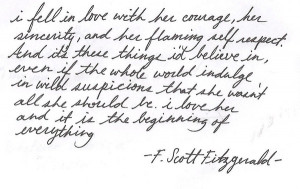 i fell in love with her courage, her
sincerity, and her flaming self respect.
And it's these things i'd believe in,
even if the whole world indulge
in wild suspicions that she wasn't
all she should be. i love her
and it is the beginning of
everything
-F. Scott Fitzgerald-